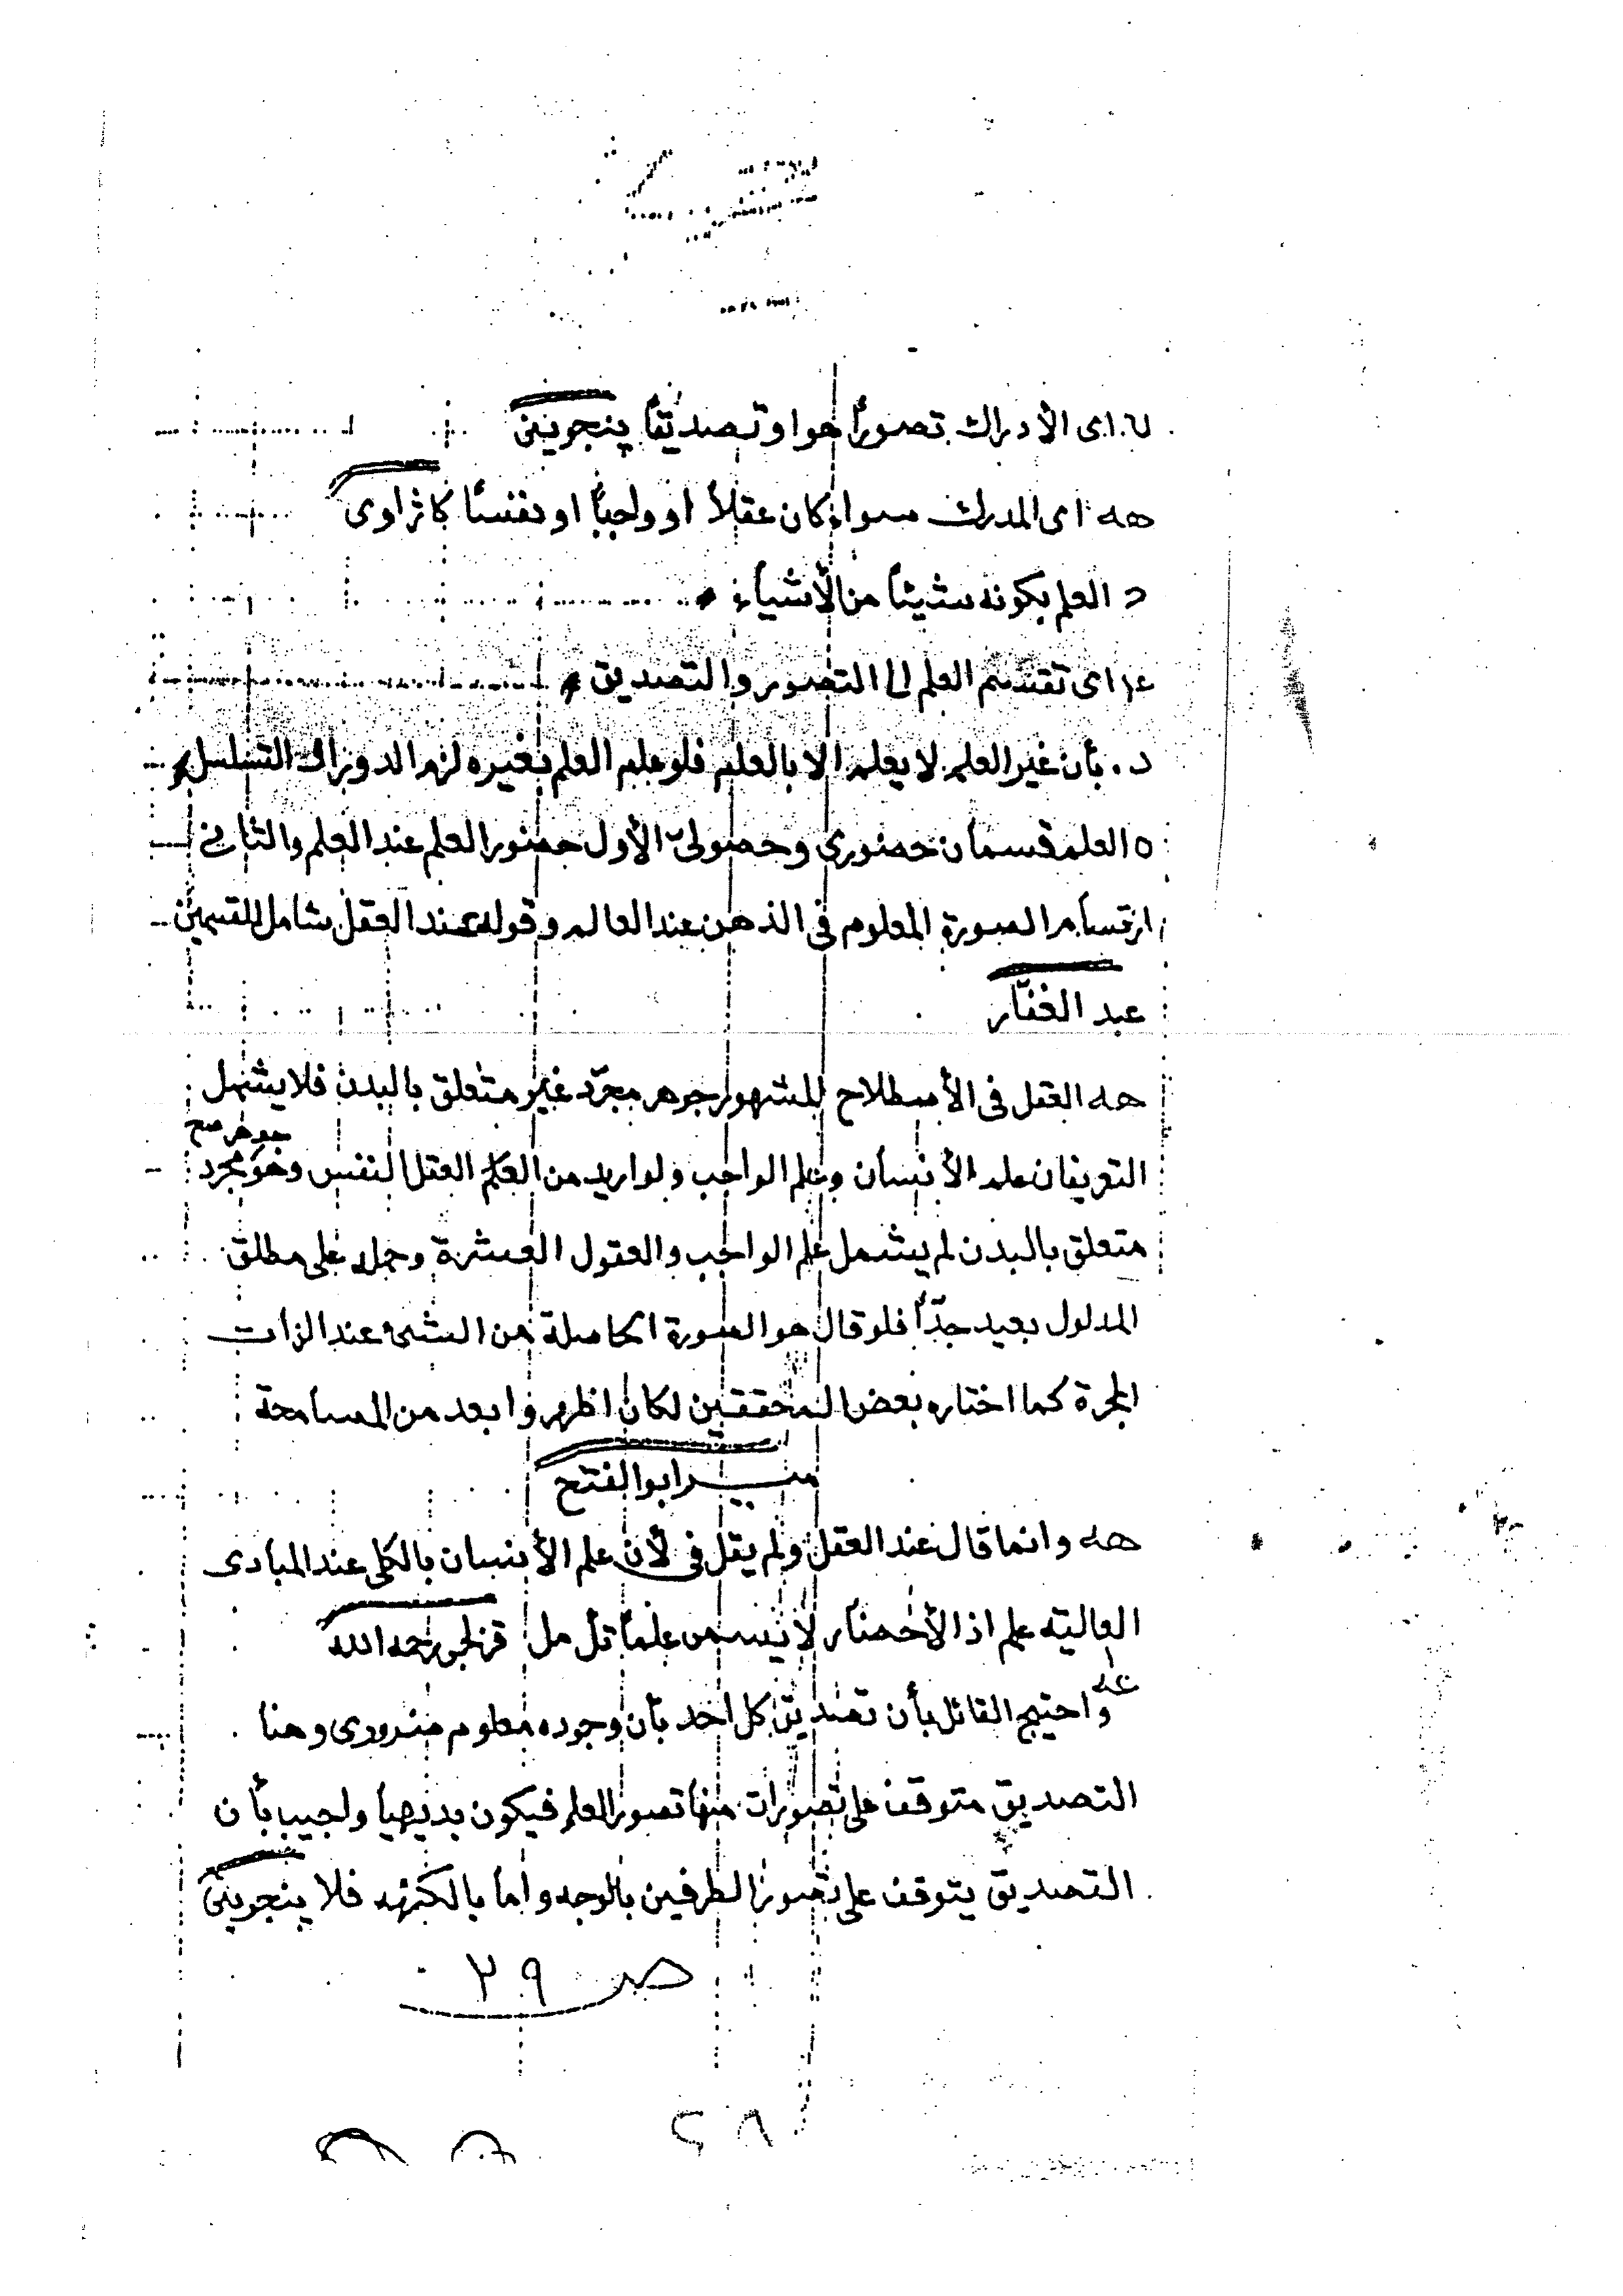 ای الأدراك تصوراً هوا وتصديقاً پنجوينى
هه ای المدرك سواء كان عقلاً او واجباً او نفسًا كاثراوى
د العلم بكونه شيئاً من الأشياء
ای تقسيم العلم الى التصور والتصديق
د. بأن غير العلم لا يعلم الا بالعلم فلو علم العلم بغيره لزم الدور او التسلسل
٥ العلم قسمان حضوري وحصولى الأول حضور العلم عند العلم والثانى
ارتسام الصورة المعلوم فى الذهن عند العالم وقوله عند العقل شامل للقسمين
عبد الغفّار
هه العقل فى الأصطلاح المشهور جوهر مجرّد غير متعلق بالبدن فلا يشمل
جوهر صح
التعريفان علم الأنسان وعلم الواجب ولو اريد من العلم العقل النفس وهو مجرد
متعلق بالبدن لم يشمل علم الواجب والعقول العشرة وحمله على مطلق
المدلول بعيد جدّاً فلو قال هو الصورة الحاصلة من الشئ عند الزات
المجرة كما اختاره بعض المحققين لكان اظهر وابعد من المسامحة
ميرابوالفتح
هه وانما قال عند العقل ولم يقل فى لأن علم الأنسان بالكلى عند المبادى
العاليه علم اذ الأحضار لا علماً تأمل قزلجى رحمه الله
عه واحتج القائل بأن تصديق كل احد بأن وجوده معلوم ضرورى وهنا
التصديق متوقف على تصورات منها تصور العلم فيكون بديهياً ولجيب بأن
التصديق يتوقف على تصور الطرفين بالوجه واما بالكنهه فلا پنجوينى
صـ ٢٩
٢٨